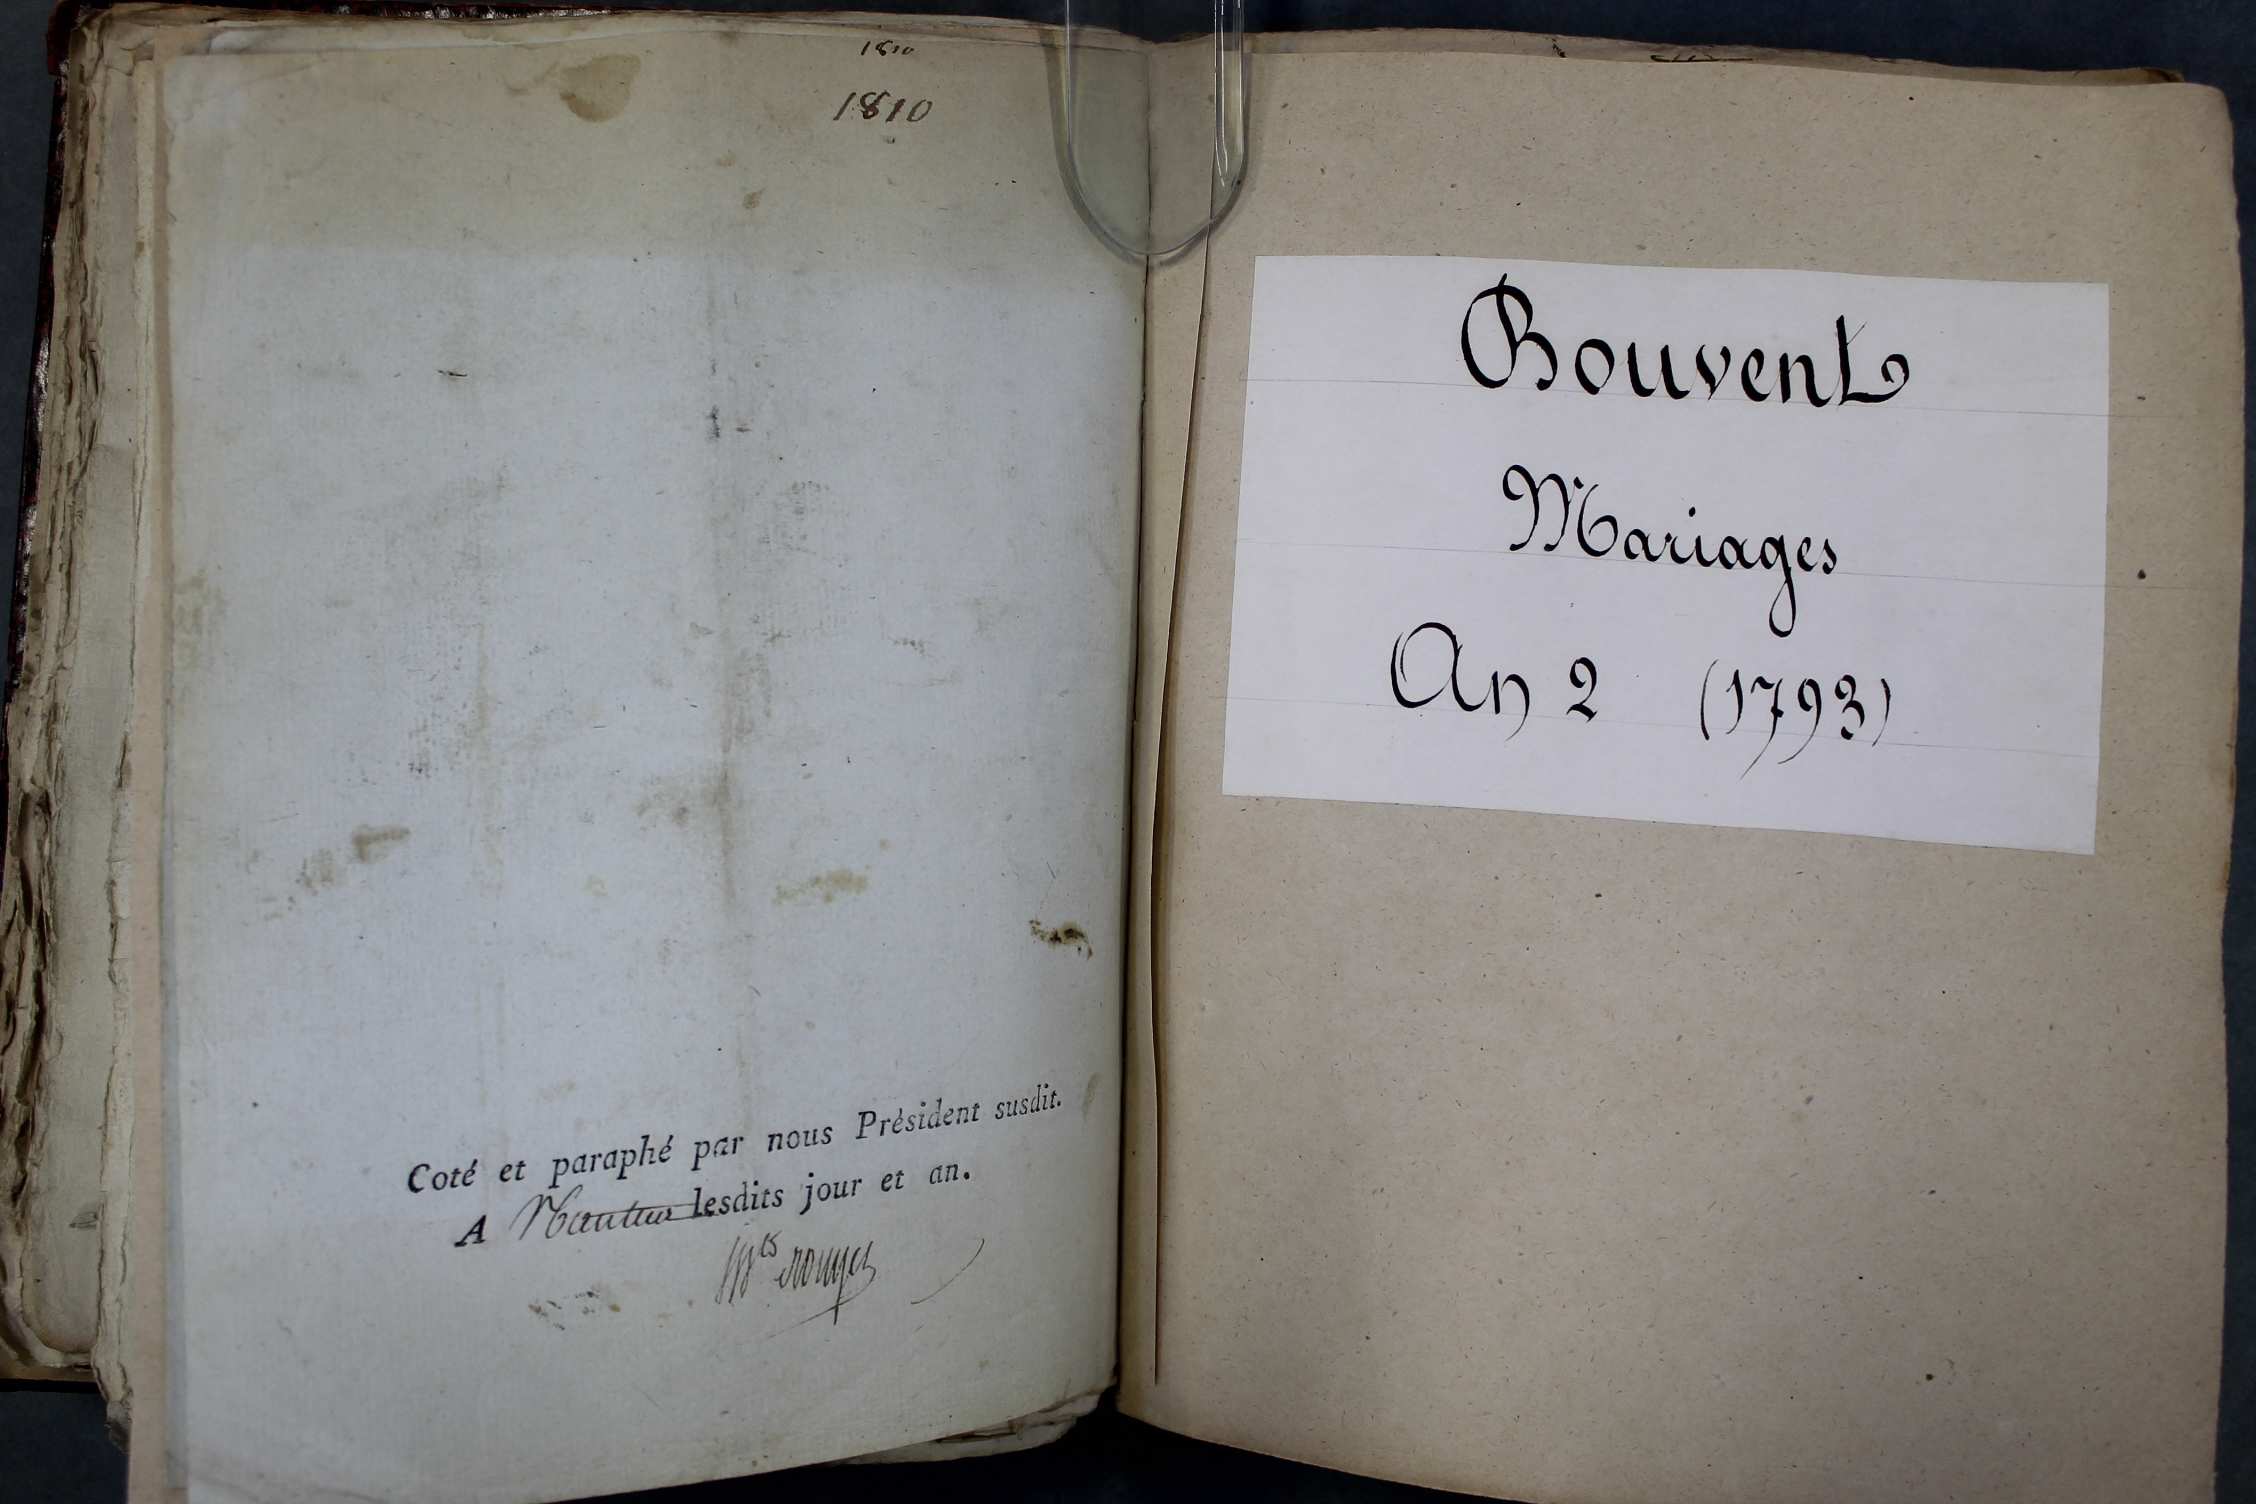 1810
1810
Coté et paraphé par nous Président susdit.
A Nantua lesdits jour et an.
Bouvent
Mariages
An 2 (1793)